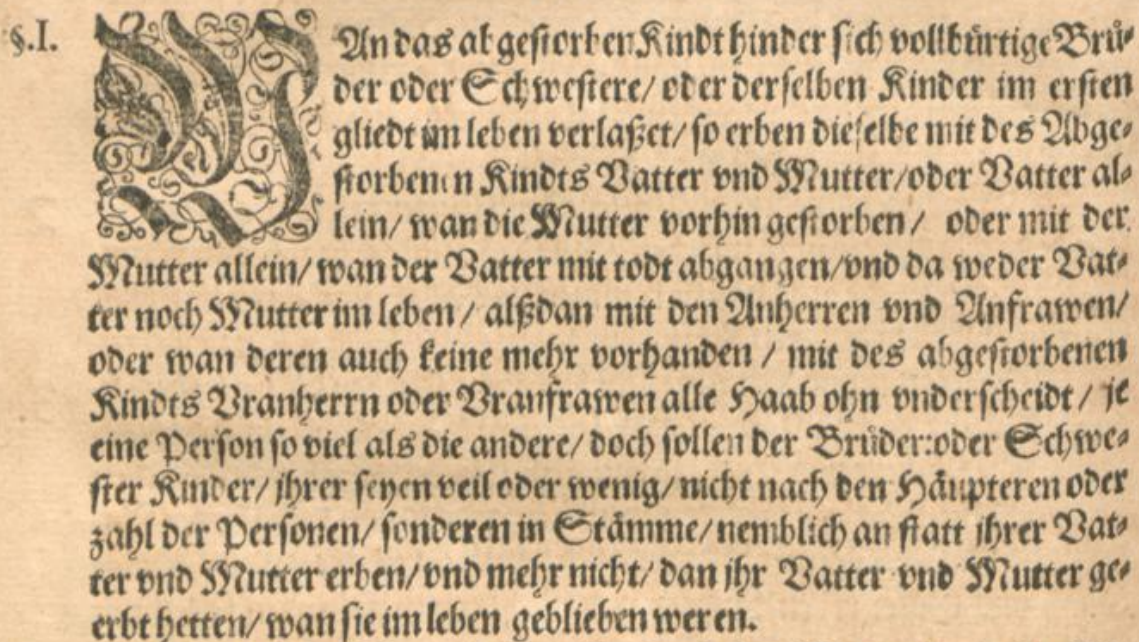 §.I. WAn das abgestorben Kindt hinder sich vollbürtige Brü-
der oder Schwestere/ oder derselben Kinder im ersten
gliedt im leben verlaßet/ so erben dieselbe mit des Abge-
storbenen Kindts Vatter vnd Mutter/oder Vatter al-
lein/ wan die Mutter vorhin gestorben / oder mit der
Mutter allein/ wan der Vatter mit todt abgangen/vnd da weder Vat-
ter noch Mutter im leben / alßdan mit den Anherren vnd Anfrawen/
oder wan deren auch keine mehr vorhanden / mit des abgestorbenen
Kindts Vranherrn oder Vranfrawen alle Haab ohn vnderscheidt / je
eine Person so viel als die andere/ doch sollen der Brüder:oder Schwe-
ster Kinder/ jhrer seyen veil oder wenig/ nicht nach den Häupteren oder
zahl der Personen/ sonderen in Stämme/ nemblich an statt jhrer Vat-
ter vnd Mutter erben/ vnd mehr nicht/ dan jhr Vatter vnd Mutter ge-
erbt hetten/ wan sie im leben geblieben weren.